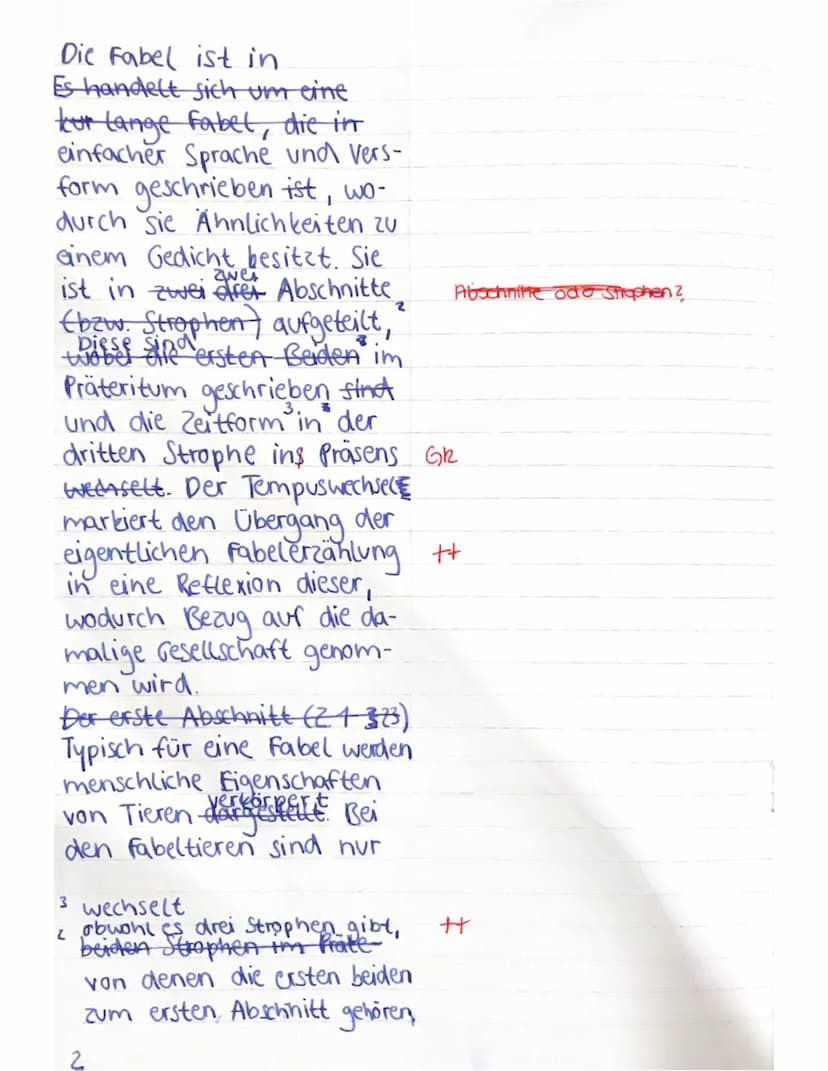 Die Fabel ist in
Es handelt sich um eine
kur lange Fabel, die in
einfacher Sprache und Vers-
form geschrieben ist, wo-
durch sie Ähnlichkeiten zu
einem Gedicht besitzt. Sie
zwei
ist in zwei drei Abschnitte
Abschnitte oder Strophen?
(bzw. Strophen) aufgeteilt, 2
Diese sind
wobei die ersten Beiden im
Präteritum geschrieben sind
und die Zeitform 3 in der
dritten Strophe ins Präsens GR
wechselt. Der Tempuswechsel
markiert den Übergang der
eigentlichen Fabelerzählung ++
in eine Reflexion dieser,
wodurch Bezug auf die da-
malige Gesellschaft genom-
men wird.
Der erste Abschnitt (Z 1 - 23)
Typisch für eine Fabel werden
menschliche Eigenschaften
verkörpert
von Tieren dargestellt. Bei
den Fabeltieren sind nur
3 wechselt
2 obwohl es drei Strophen gibt, ++
beiden Strophen im Präte-
von denen die ersten beiden
zum ersten Abschnitt gehören,
2